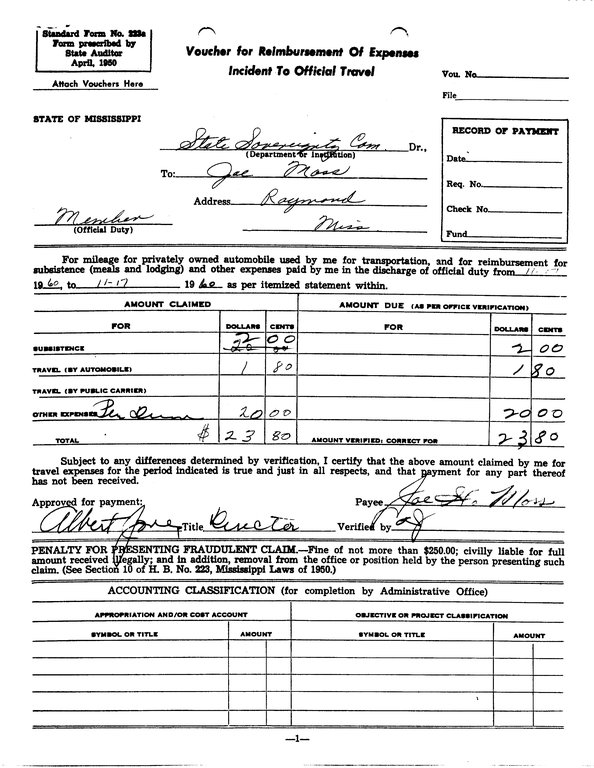 Standard Form No. 223a
Form prescribed by
State Auditor
April, 1950
Attach Vouchers Here
Voucher for Reimbursement Of Expenses
Incident To Official Travel
Vou. No.
File
STATE OF MISSISSIPPI
State Sovereignty Com. Dr.,
(Department or Institution)
To: Joe Moss
Address Raymond
Miss
Member
(Official Duty)
RECORD OF PAYMENT
Date
Req. No.
Check No.
Fund
For mileage for privately owned automobile used by me for transportation, and for reimbursement for
subsistence (meals and lodging) and other expenses paid by me in the discharge of official duty from 11-17
1960, to 11-17 1960 as per itemized statement within.
AMOUNT CLAIMED AMOUNT DUE (AS PER OFFICE VERIFICATION)
FOR DOLLARS CENTS FOR DOLLARS CENTS
SUBSISTENCE 2 00 2 00
TRAVEL (BY AUTOMOBILE) 1 80 1 80
TRAVEL (BY PUBLIC CARRIER)
OTHER EXPENSES Per Diem 20 00 20 00
TOTAL $ 23 80 AMOUNT VERIFIED: CORRECT FOR 23 80
Subject to any differences determined by verification, I certify that the above amount claimed by me for
travel expenses for the period indicated is true and just in all respects, and that payment for any part thereof
has not been received.
Approved for payment: Payee Joe H. Moss
Albert Jones Title Director Verified by
PENALTY FOR PRESENTING FRAUDULENT CLAIM.—Fine of not more than $250.00; civilly liable for full
amount received illegally; and in addition, removal from the office or position held by the person presenting such
claim. (See Section 10 of H. B. No. 223, Mississippi Laws of 1950.)
ACCOUNTING CLASSIFICATION (for completion by Administrative Office)
APPROPRIATION AND/OR COST ACCOUNT OBJECTIVE OR PROJECT CLASSIFICATION
SYMBOL OR TITLE AMOUNT SYMBOL OR TITLE AMOUNT
—1—